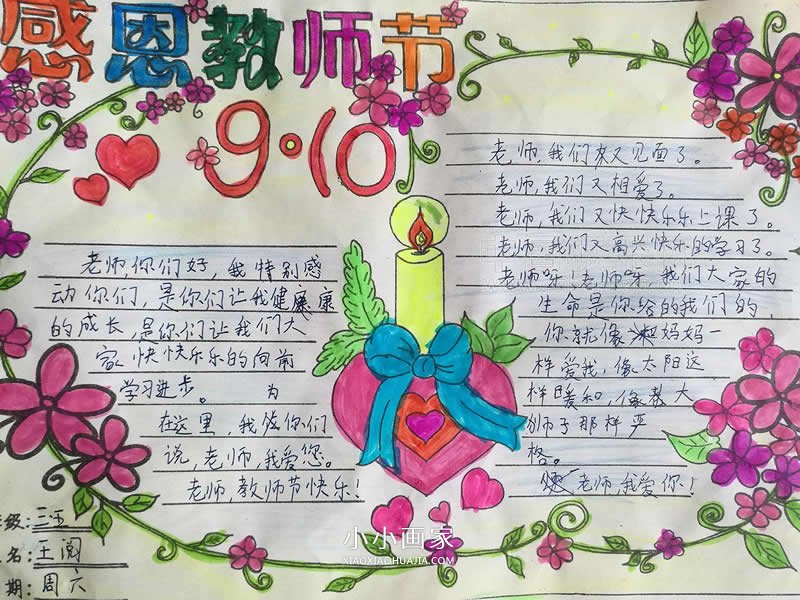 感恩教师节
9·10
老师你们好，我特别感
动你们，是你们让我健康康
的成长，是你们让我们大
家快快乐乐的向前
学习进步。 为
在这里，我
你们
说，老师，我爱您。
老师，教师节快乐！
级：三
名：王
期：周六
老师，我们来又见面了。
老师，我们又相爱了。
老师，我们又快快乐乐上课了。
老师，我们又高兴快乐的学习了。
老师呀！老师呀，我们大家的
生命是你给的我们的，
你就像妈妈一
样爱我，像太阳这
样暖和，像
大
师子那样严
格。
老师，我爱你！
小小画家
XIAOXIAOHUAJIA.COM